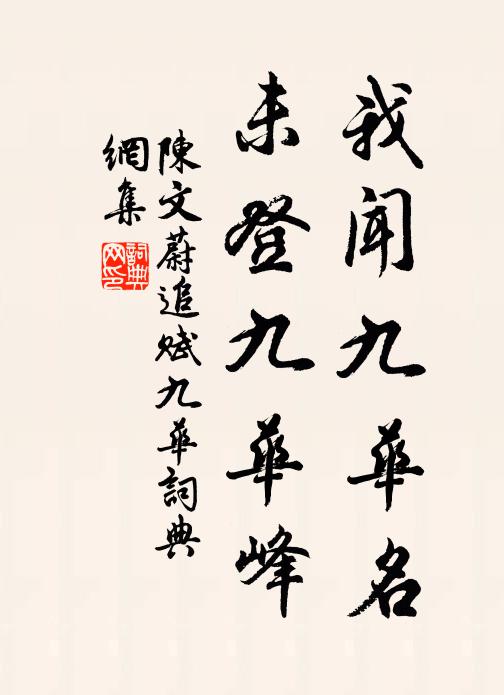 我聞九華名
未登九華峰
陳文蔚追賦九華詞典
網集
詞典網印